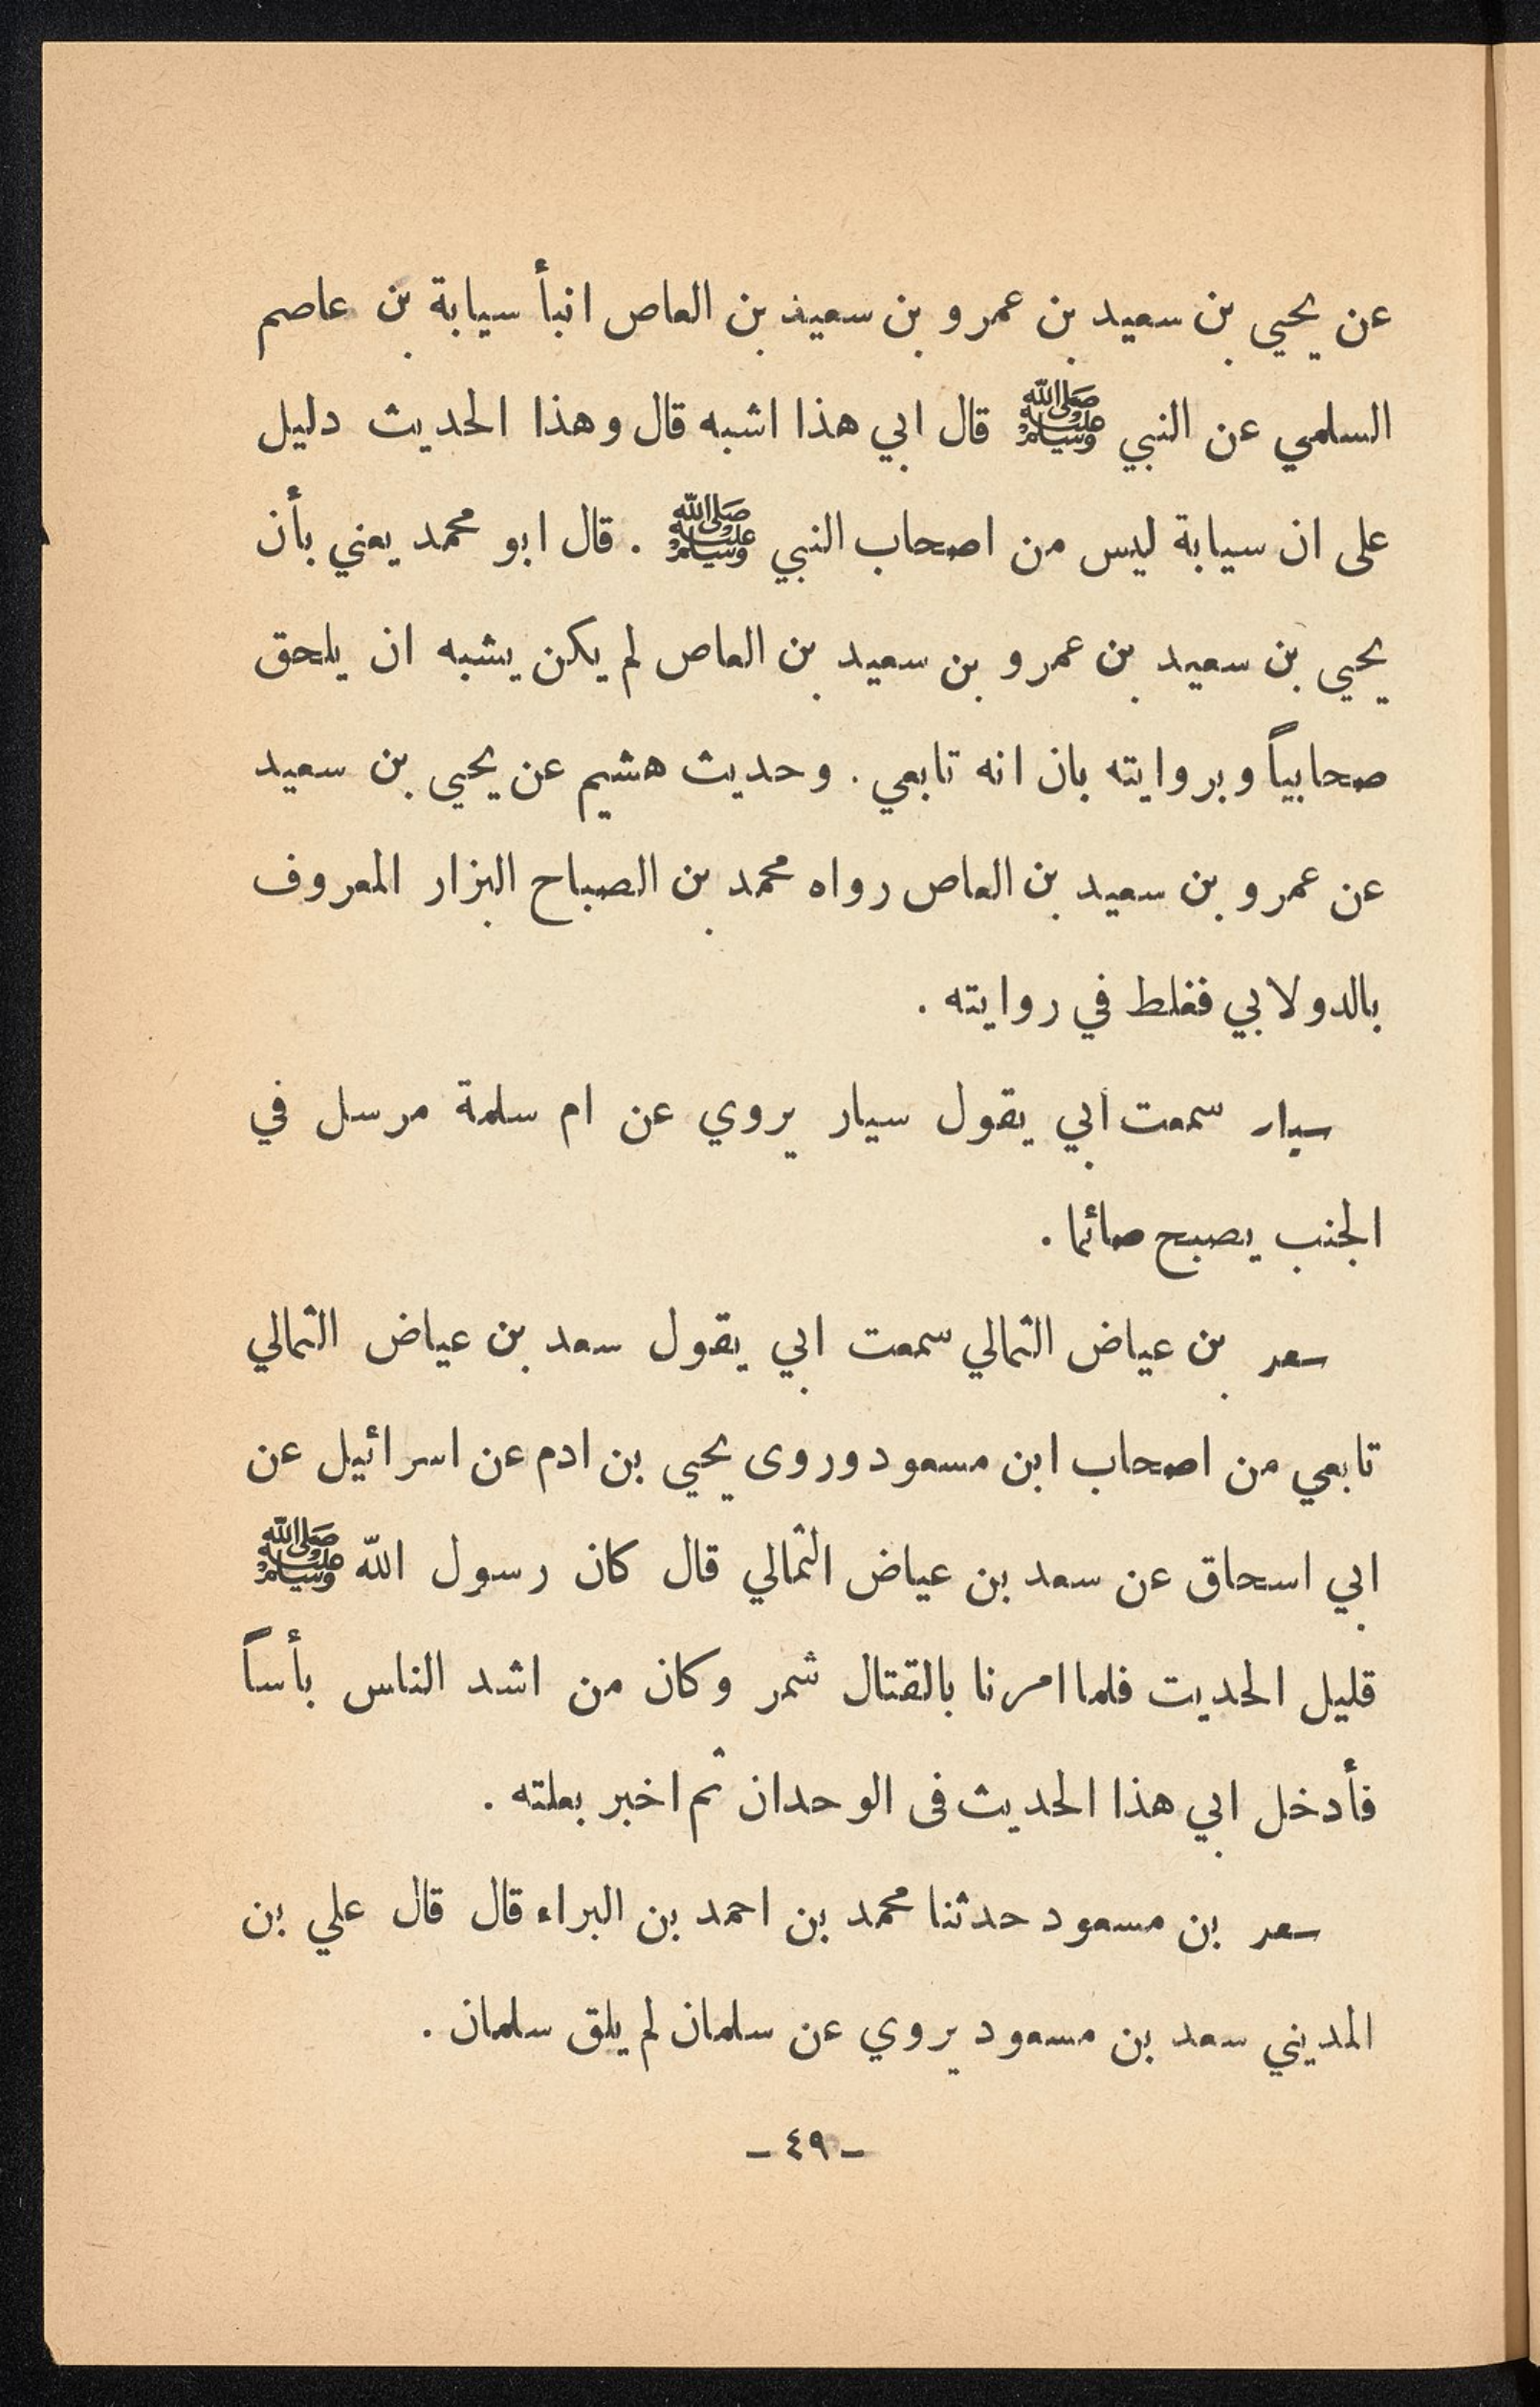 عن يحيى بن سعيد بن عمرو بن سعيد بن العاص انبأ سيابة بن عاصم
السلمي عن النبي ﷺ قال ابي هذا اشبه قال وهذا الحديث دليل
على ان سيابة ليس من اصحاب النبي ﷺ . قال ابو محمد يعني بأن
يحيى بن سعيد بن عمرو بن سعيد بن العاص لم يكن يشبه ان يلحق
صحابياً وبروايته بان انه تابعي . وحديث هشيم عن يحيى بن سعيد
عن عمرو بن سعيد بن العاص رواه محمد بن الصباح البزار المعروف
بالدولابي فغلط في روايته .
سيار سمعت ابي يقول سيار يروي عن ام سلمة مرسل في
الجنب يصبح صائما .
سعد بن عياض الثمالي سمعت ابي يقول سعد بن عياض الثمالي
تابعي من اصحاب ابن مسعود وروى يحيى بن ادم عن اسرائيل عن
ابي اسحاق عن سعد بن عياض الثمالي قال كان رسول الله ﷺ
قليل الحديت فلما امرنا بالقتال شمر وكان من اشد الناس بأساً
فأدخل ابي هذا الحديث فى الوحدان ثم اخبر بعلته .
سعد بن مسعود حدثنا محمد بن احمد بن البراء قال قال علي بن
المديني سعد بن مسعود يروي عن سلمان لم يلق سلمان .
— ٤٩ —